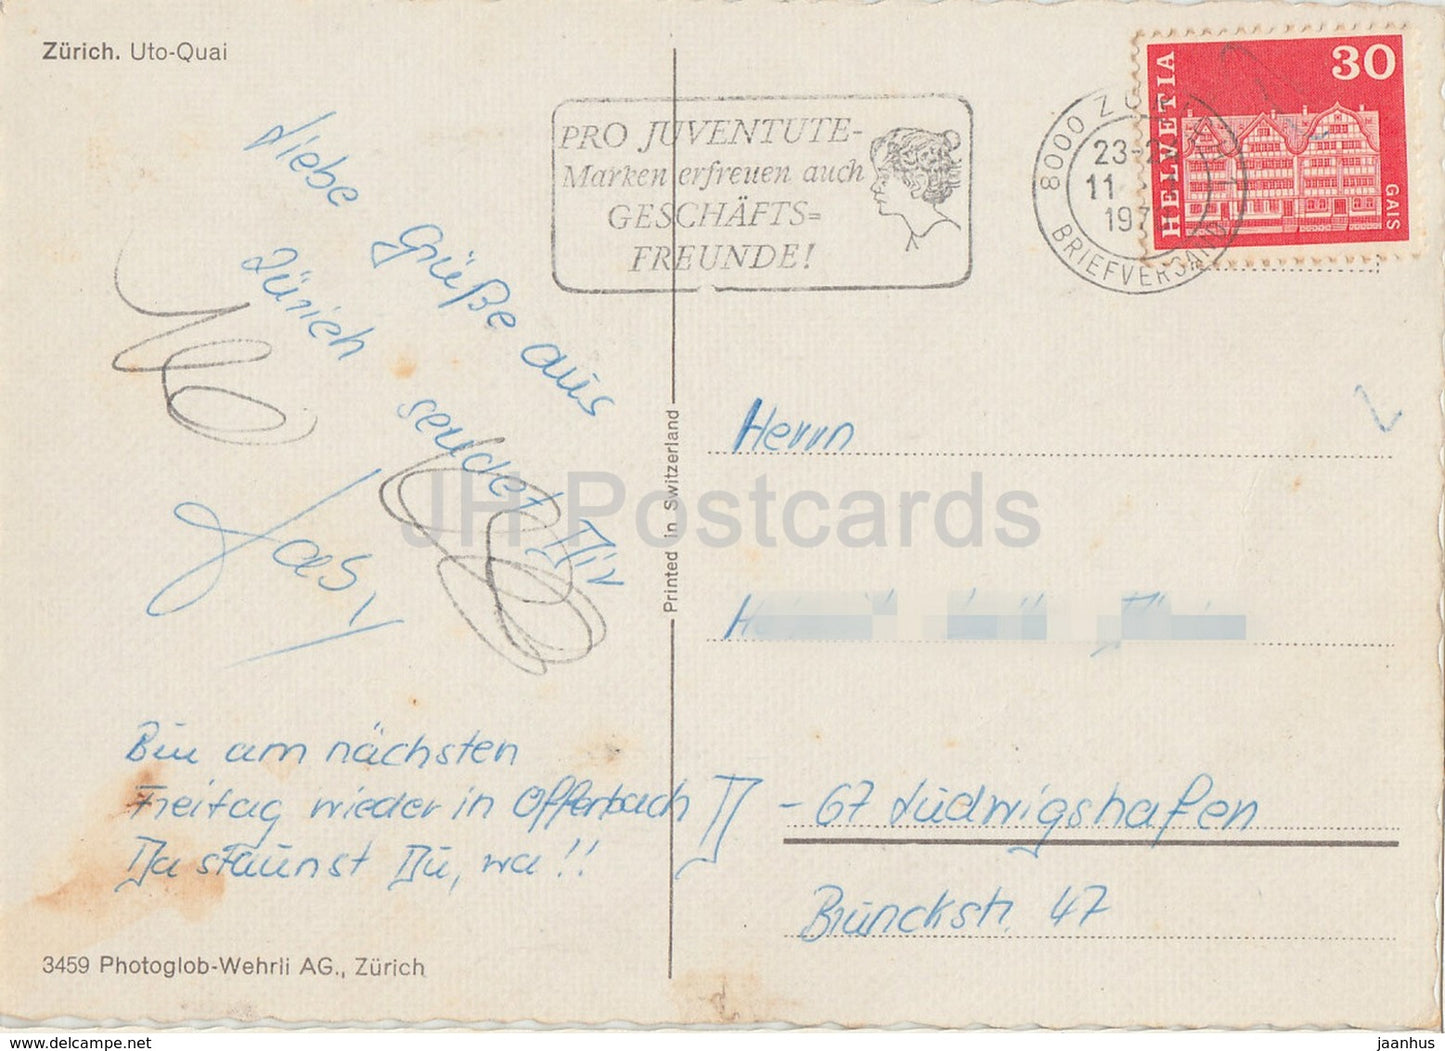 Zürich. Uto-Quai
Liebe
Grüße aus
Zürich
sendet Dir
Gaby
Bin am nächsten
Freitag wieder in Offenbach
Da staunst Du, wa!!
3459 Photoglob-Wehrli AG., Zürich
Printed in Switzerland
PRO JUVENTUTE-
Marken erfreuen auch
GESCHÄFTS=
FREUNDE!
8000 ZÜRICH
23-2
11
197
BRIEFVERSAND
HELVETIA
30
GAIS
Herrn
D-67 Ludwigshafen
Brunckstr. 47
JH Postcards
www.delcampe.net
jaanhus